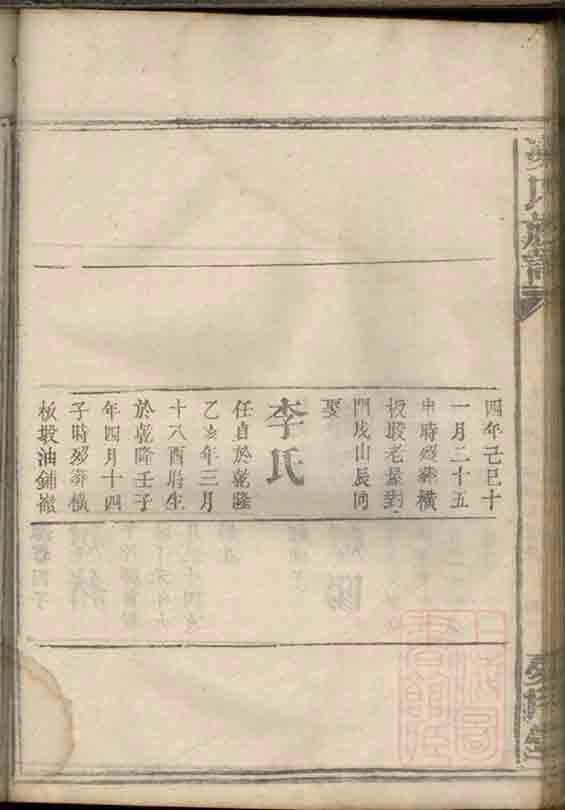 四年己巳十
一月二十五
申時歿葬橫
板塅老屋對
門戌山辰向
娶
李氏
任貞於乾隆
乙亥年三月
十八酉時生
於乾隆壬子
年四月十四
子時歿葬橫
板塅油鋪嶺
氏族譜